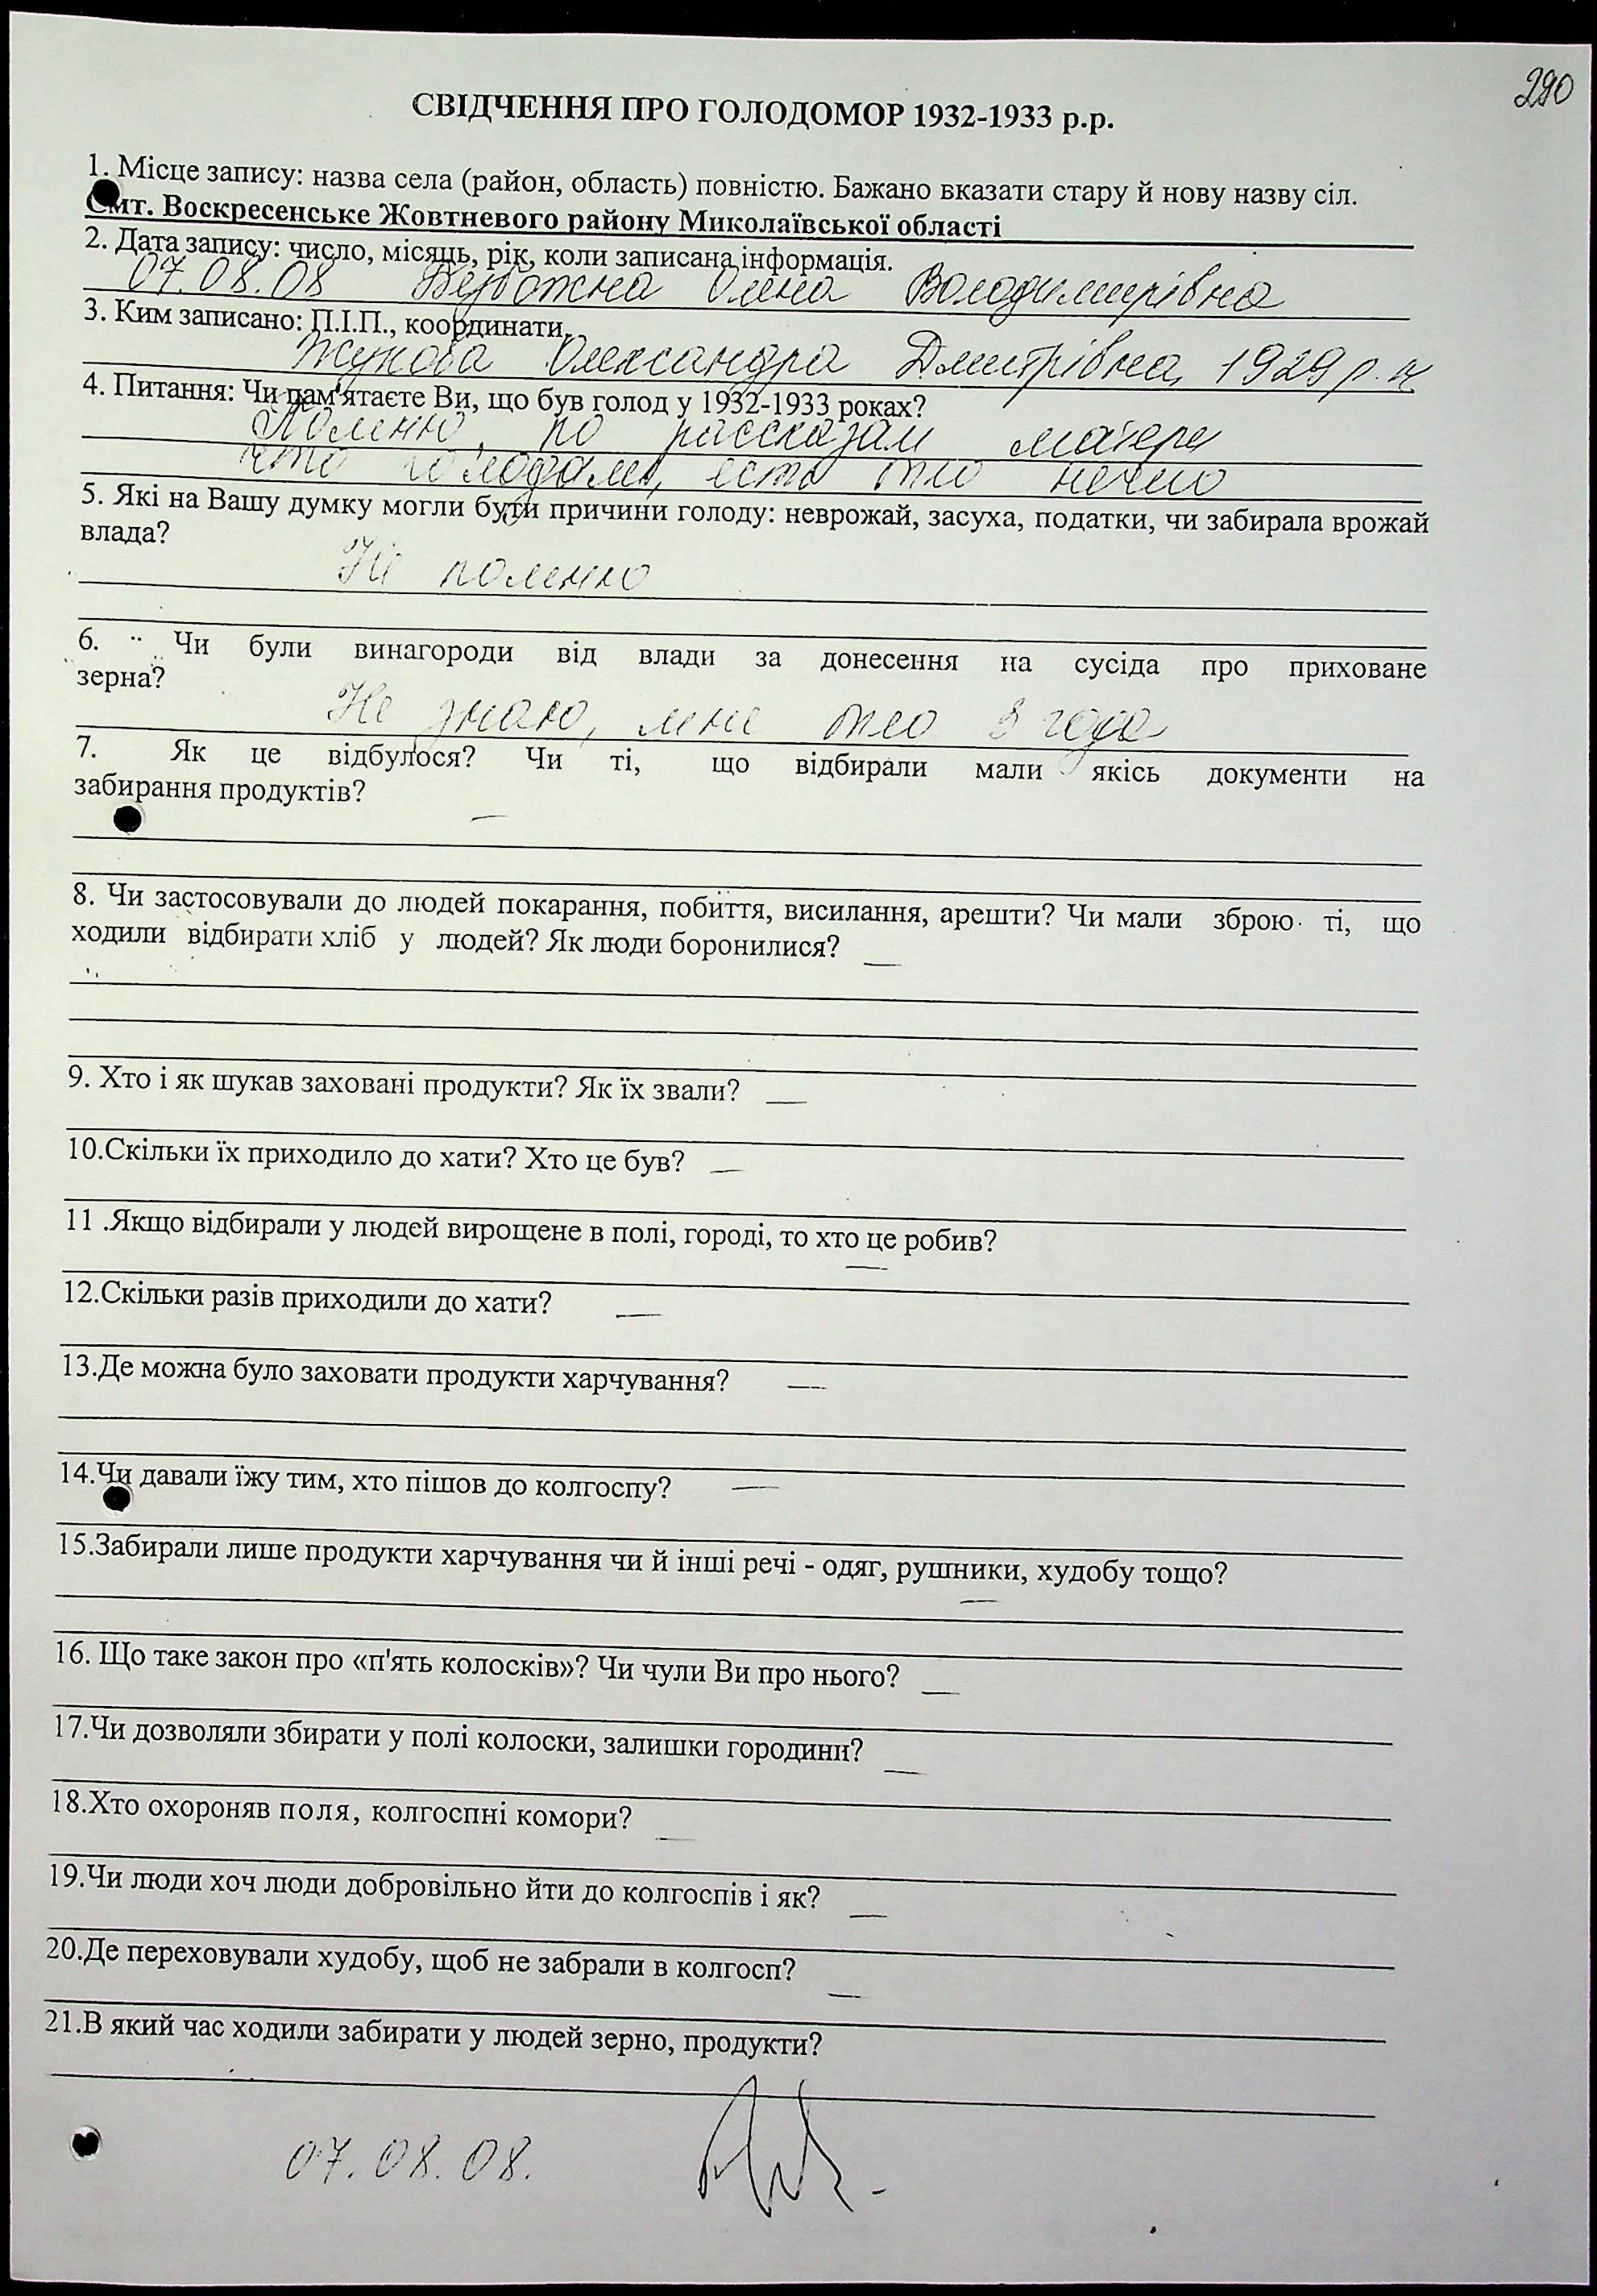 290
СВІДЧЕННЯ ПРО ГОЛОДОМОР 1932-1933 р.р.
1. Місце запису: назва села (район, область) повністю. Бажано вказати стару й нову назву сіл.
Смт. Воскресенське Жовтневого району Миколаївської області
2. Дата запису: число, місяць, рік, коли записана інформація.
07.08.08 Олена Володимирівна
3. Ким записано: П.І.П., координати.
Жукова Олександра Дмитрівна, 1929 р.н
4. Питання: Чи пам'ятаєте Ви, що був голод у 1932-1933 роках?
Помню, по рассказам матери
что голодали, есть было нечего
5. Які на Вашу думку могли бути причини голоду: неврожай, засуха, податки, чи забирала врожай
влада?
Не помню
6. Чи були винагороди від влади за донесення на сусіда про приховане
зерна?
Не знаю, мне было 3 года
7. Як це відбулося? Чи ті, що відбирали мали якісь документи на
забирання продуктів?
—
8. Чи застосовували до людей покарання, побиття, висилання, арешти? Чи мали зброю ті, що
ходили відбирати хліб у людей? Як люди боронилися? —
9. Хто і як шукав заховані продукти? Як їх звали? —
10.Скільки їх приходило до хати? Хто це був? —
11 .Якщо відбирали у людей вирощене в полі, городі, то хто це робив?
—
12.Скільки разів приходили до хати? —
13.Де можна було заховати продукти харчування? —
14.Чи давали їжу тим, хто пішов до колгоспу? —
15.Забирали лише продукти харчування чи й інші речі - одяг, рушники, худобу тощо?
—
16. Що таке закон про «п'ять колосків»? Чи чули Ви про нього? —
17.Чи дозволяли збирати у полі колоски, залишки городини? —
18.Хто охороняв поля, колгоспні комори? —
19.Чи люди хоч люди добровільно йти до колгоспів і як? —
20.Де переховували худобу, щоб не забрали в колгосп? —
21.В який час ходили забирати у людей зерно, продукти?
07.08.08.